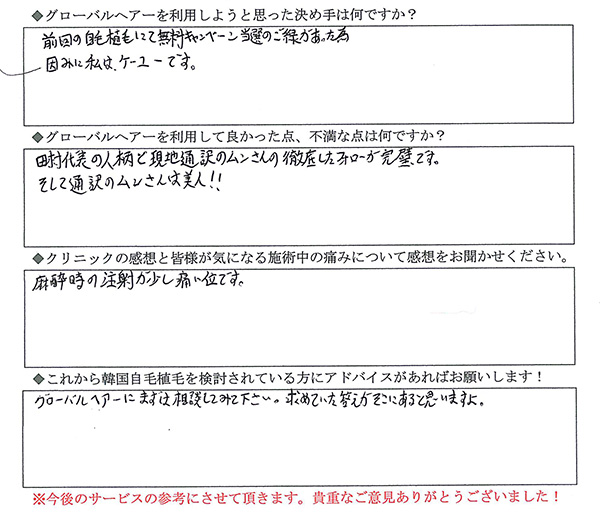 ◆グローバルヘアーを利用しようと思った決め手は何ですか？
前回の自毛植毛にて無料キャンペーン当選のご縁があった為
因みに私は、ケーユーです。
◆グローバルヘアーを利用して良かった点、不満な点は何ですか？
田村代表の人柄と現地通訳のムンさんの徹底したフォローが完璧です。
そして通訳のムンさんは美人!!
◆クリニックの感想と皆様が気になる施術中の痛みについて感想をお聞かせください。
麻酔時の注射が少し痛い位です。
◆これから韓国自毛植毛を検討されている方にアドバイスがあればお願いします！
グローバルヘアーにまずは相談してみて下さい。求めていた答えがそこにあると思いますよ。
※今後のサービスの参考にさせて頂きます。貴重なご意見ありがとうございました！